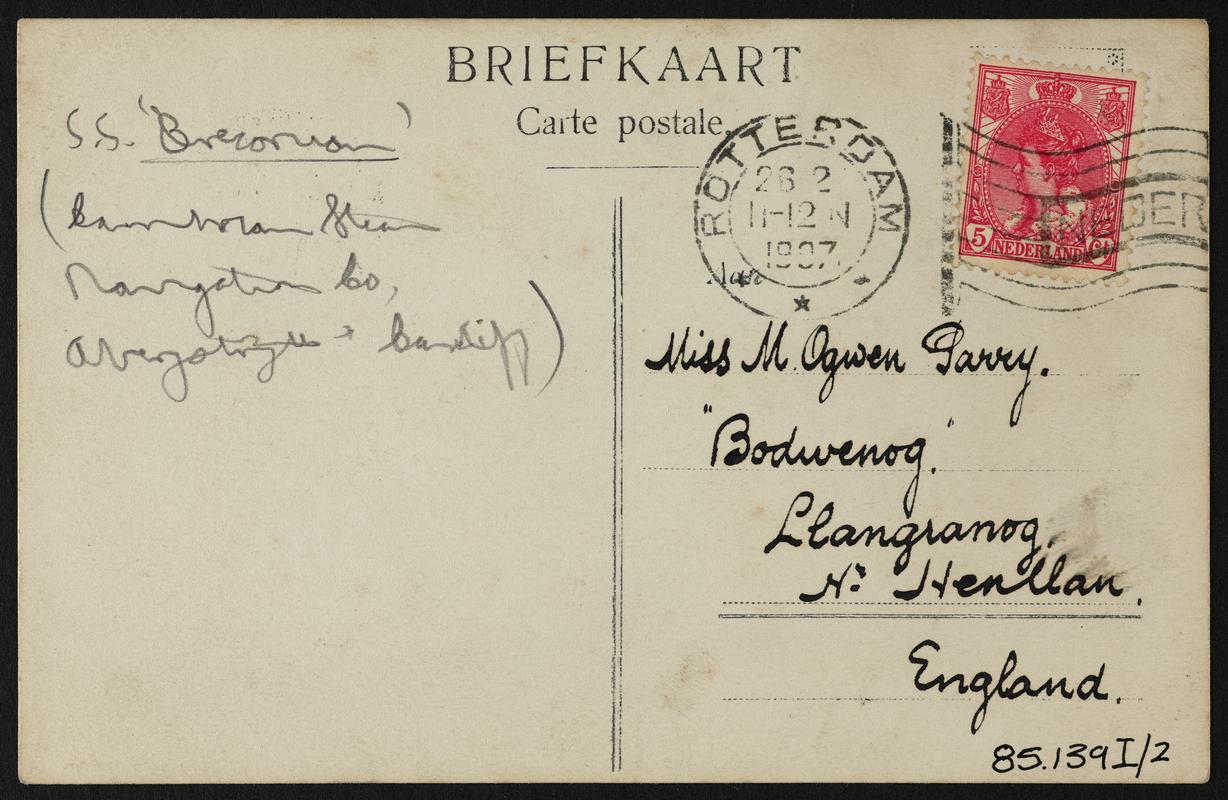 BRIEFKAART
Carte postale.
S.S. 'Breconian'
(Cambrian Steam
Navigation Co,
Aberystwyth + Cardiff)
ROTTERDAM
26 2
11-12 N
1907
NEDER
5 NEDERLAND Ct
Aan
Miss M. Ogwen Parry.
"Bodwenog."
Llangranog.
Nr. Henllan.
England.
85.139I/2